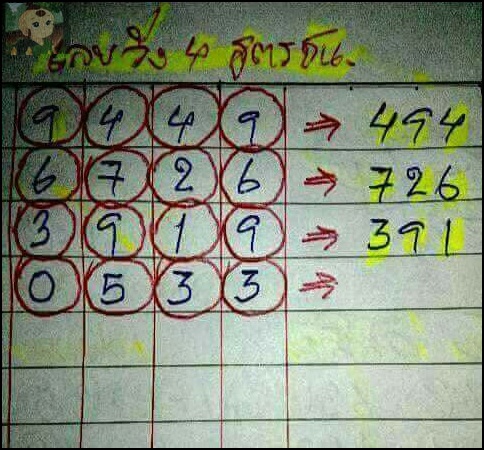 เลขวิ่ง 4 สูตรชน.
9 4 4 9 ⇒ 494
6 7 2 6 ⇒ 726
3 9 1 9 ⇒ 391
0 5 3 3 ⇒